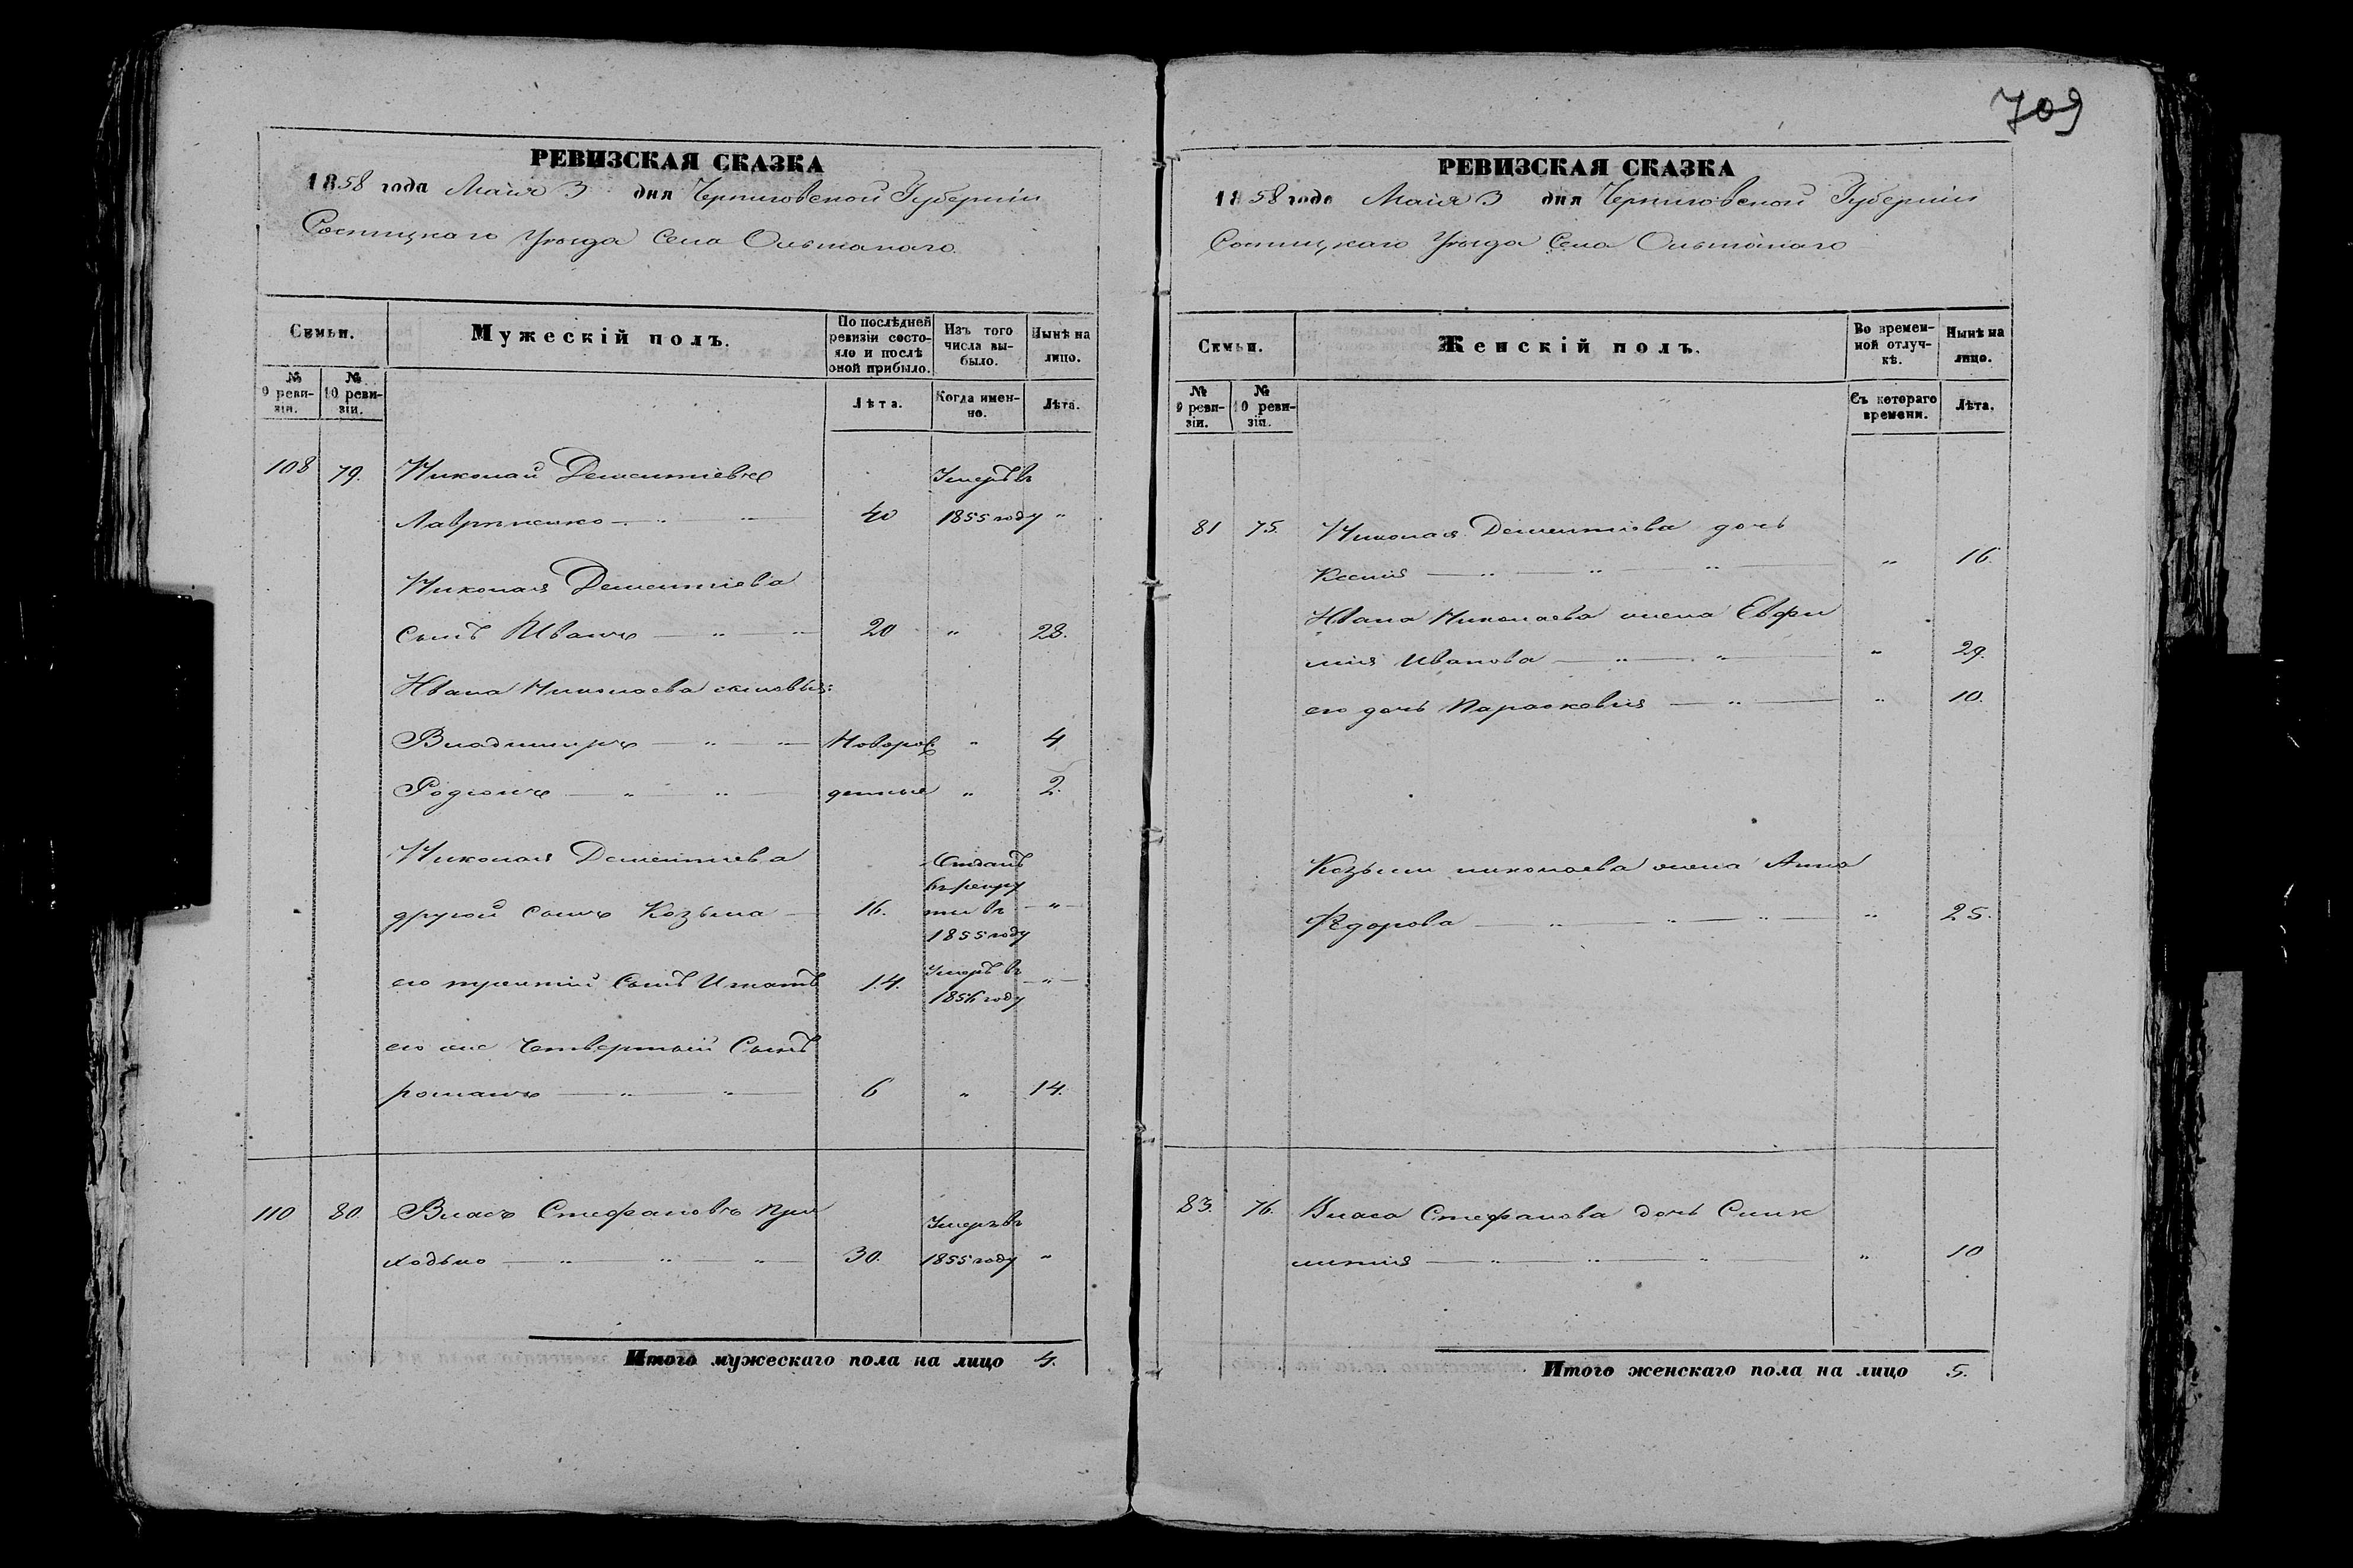 709
РЕВИЗСКАЯ СКАЗКА
1858 года Маія 3 дня Черниговской Губерніи
Сосницкаго Уѣзда Села Ольшанаго
Семьи.
Мужескій полъ.
По послѣдней ревизіи состояло и послѣ оной прибыло.
Изъ того числа выбыло.
Нынѣ на лицо.
№ 9 ревизіи.
№ 10 ревизіи.
Лѣта.
Когда именно.
Лѣта.
108 79. Николай Дементіевъ Умеръ въ
Лавриненко — „ — 40 1855 году „
Николая Дементіева
сынъ Иванъ — „ — „ 20 „ 28.
Ивана Николаева сыновья:
Владимиръ — „ — „ Новорож „ 4
Родіонъ — „ — „ денные „ 2.
Николая Дементіева Отданъ
въ рекру
другой сынъ Козьма — 16. ты въ — „ —
1855 году
его третій сынъ Игнатъ 14. Умеръ въ — „ —
1856 году
его же Четвертый Сынъ
романъ — „ — „ — 6 „ 14.
110 80. Власъ Стефановъ При Умеръ въ
ходько — „ — „ — „ — 30. 1855 году „
Итого мужескаго пола на лицо 4.
РЕВИЗСКАЯ СКАЗКА
1858 года Маія 3 дня Черниговской Губерніи
Сосницкаго Уѣзда Села Ольшанаго
Семьи.
Женскій полъ.
Во временной отлучкѣ.
Нынѣ на лицо.
№ 9 ревизіи.
№ 10 ревизіи.
Съ котораго времени.
Лѣта.
81 75. Николая Дементіева дочь
Ксенія — „ — „ — „ — „ 16.
Ивана Николаева жена Евфи
мія Иванова — „ — „ — „ 29.
его дочь Параскевія — „ — „ 10.
Козьмы николаева жена Анна
Федорова — „ — „ — „ — „ 25.
83. 76. Власа Стефанова дочь Синк
литія — „ — „ — „ — „ 10
Итого женскаго пола на лицо 5.